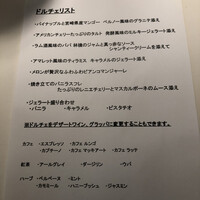 ドルチェリスト
・パイナップルと宮崎県産マンゴー　ペルノー風味のグラニテ添え
・アメリカンチェリーたっぷりのタルト　発酵風味のミルキージェラート添え
・ラム酒風味のババ　林檎のジャムと真っ赤なソース
シャンティークリームを添えて
・アマレット風味のティラミス　キャラメルのジェラート添え
・メロンが贅沢なふわふわビアンコマンジャーレ
・焼き立てのバニラスフレ
たっぷりのレシエチェリーとマスカルポーネのムース添え
・ジェラート盛り合わせ
・バニラ　・キャラメル　・ピスタチオ
※ドルチェをデザートワイン、グラッパに変更することもできます。
カフェ　・エスプレッソ　・カフェ ルンゴ
・カプチーノ　・カフェ マッキアート　・カフェ ラッテ
紅茶　・アールグレイ　・ダージリン　・ウバ
ハーブ　・ベルベーヌ　・ミント
・カモミール　・ハニーブッシュ　・ジャスミン